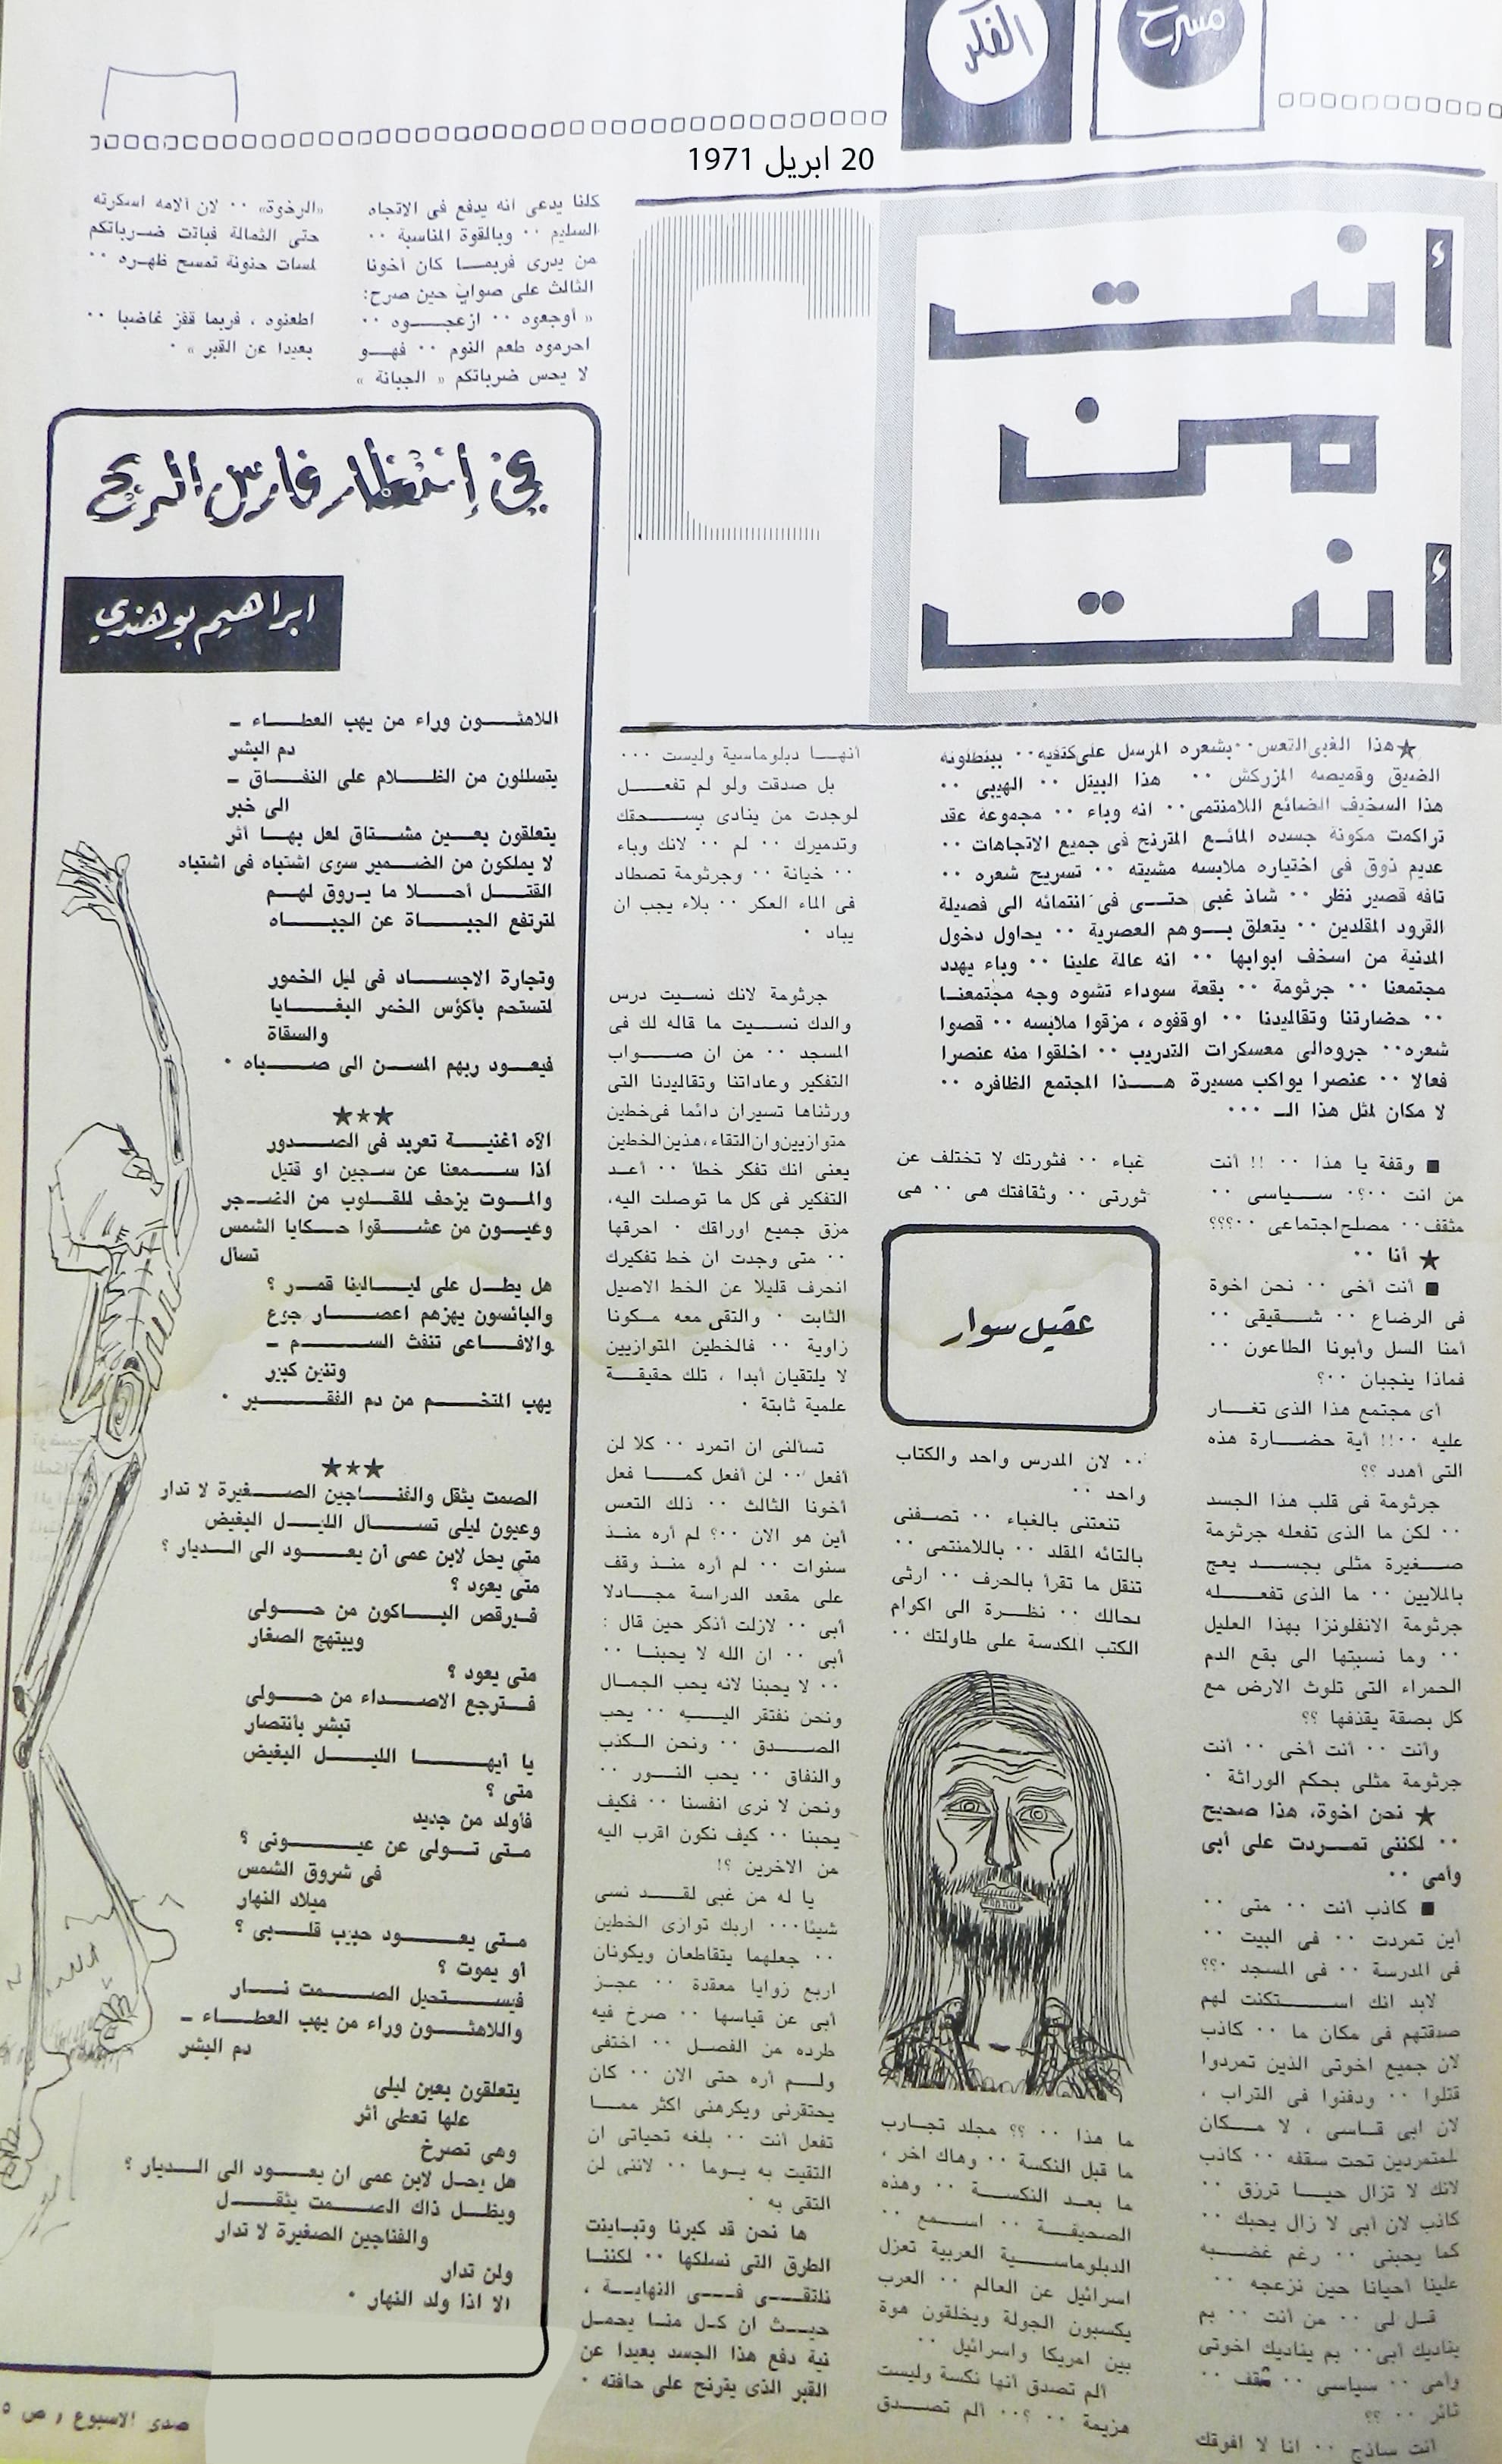 مسرح
الفكر
20 ابريل 1971
أنت
من
أنت
★ هذا الغبى التعس ٠٠ بشعره المرسل على كتفيه ٠٠ ببنطلونه
الضيق وقميصه المزركش ٠٠ هذا البيتل ٠٠ الهيبى ٠٠
هذا السخيف الضائع اللامنتمى ٠٠ انه وباء ٠٠ مجموعة عقد
تراكمت مكونة جسده المائع المترنح فى جميع الاتجاهات ٠٠
عديم ذوق فى اختياره ملابسه مشيته ٠٠ تسريح شعره ٠٠
تافه قصير نظر ٠٠ شاذ غبى حتى فى انتمائه الى فصيلة
القرود المقلدين ٠٠ يتعلق بوهم العصرية ٠٠ يحاول دخول
المدنية من اسخف ابوابها ٠٠ انه عالة علينا ٠٠ وباء يهدد
مجتمعنا ٠٠ جرثومة ٠٠ بقعة سوداء تشوه وجه مجتمعنا
٠٠ حضارتنا وتقاليدنا ٠٠ اوقفوه ، مزقوا ملابسه ٠٠ قصوا
شعره ٠٠ جروه الى معسكرات التدريب ٠٠ اخلقوا منه عنصرا
فعالا ٠٠ عنصرا يواكب مسيرة هذا المجتمع الظافره ٠٠
لا مكان لمثل هذا الـ ٠٠٠
■ وقفة يا هذا ٠٠ !! أنت
من انت ٠٠؟ سياسى ٠٠
مثقف ٠٠ مصلح اجتماعى ٠٠؟؟؟
★ أنا ٠٠
■ أنت أخى ٠٠ نحن اخوة
فى الرضاع ٠٠ شقيقى ٠٠
أمنا السل وأبونا الطاعون ٠٠
فماذا ينجبان ٠٠؟
أى مجتمع هذا الذى تغار
عليه ٠٠!! أية حضارة هذه
التى أهدد ؟؟
جرثومة فى قلب هذا الجسد
٠٠ لكن ما الذى تفعله جرثومة
صغيرة مثلى بجسد يعج
بالملايين ٠٠ ما الذى تفعله
جرثومة الانفلونزا بهذا العليل
٠٠ وما نسبتها الى بقع الدم
الحمراء التى تلوث الارض مع
كل بصقة يقذفها ؟؟
وأنت ٠٠ أنت أخى ٠٠ أنت
جرثومة مثلى بحكم الوراثة ٠
★ نحن اخوة، هذا صحيح
٠٠ لكننى تمردت على أبى
وأمى ٠٠
■ كاذب أنت ٠٠ متى ٠٠
أين تمردت ٠٠ فى البيت ٠٠
فى المدرسة ٠٠ فى المسجد ٠؟؟
لابد انك استكنت لهم
صدقتهم فى مكان ما ٠٠ كاذب
لان جميع اخوتى الذين تمردوا
قتلوا ٠٠ ودفنوا فى التراب ،
لان ابى قاسى ، لا مكان
للمتمردين تحت سقفه ٠٠ كاذب
لانك لا تزال حيا ترزق ٠٠
كاذب لان أبى لا زال يحبك ٠٠
كما يحبنى ٠٠ رغم غضبه
علينا أحيانا حين نزعجه ٠٠
قل لى ٠٠ من أنت ٠٠ بم
يناديك أبى ٠٠ بم يناديك اخوتى
وأمى ٠٠ سياسى ٠٠ مثقف ٠٠
ثائر ٠٠ ؟؟
انت ساذج ٠٠ انا لا افوقك
غباء ٠٠ فثورتك لا تختلف عن
ثورتى ٠٠ وثقافتك هى ٠٠ هى
عقيل سوار
٠٠ لان المدرس واحد والكتاب
واحد ٠٠
تنعتنى بالغباء ٠٠ تصفنى
بالتائه المقلد ٠٠ باللامنتمى ٠٠
تنقل ما تقرأ بالحرف ٠٠ ارثى
بحالك ٠٠ نظرة الى اكوام
الكتب المكدسة على طاولتك ٠٠
ما هذا ٠٠ ؟؟ مجلد تجارب
ما قبل النكسة ٠٠ وهاك اخر ،
ما بعد النكسة ٠٠ وهذه
الصحيفة ٠٠ اسمع ٠٠
الدبلوماسية العربية تعزل
اسرائيل عن العالم ٠٠ العرب
يكسبون الجولة ويخلقون هوة
بين امريكا واسرائيل ٠٠
الم تصدق أنها نكسة وليست
هزيمة ٠٠ ؟ ٠٠ ألم تصدق
أنها دبلوماسية وليست ٠٠٠
بل صدقت ولو لم تفعل
لوجدت من ينادى بسحقك
وتدميرك ٠٠ لم ٠٠ لانك وباء
٠٠ خيانة ٠٠ وجرثومة تصطاد
فى الماء العكر ٠٠ بلاء يجب ان
يباد ٠
جرثومة لانك نسيت درس
والدك نسيت ما قاله لك فى
المسجد ٠٠ من ان صواب
التفكير وعاداتنا وتقاليدنا التى
ورثناها تسيران دائما فى خطين
متوازيين وان التقاء، هذين الخطين
يعنى انك تفكر خطأ ٠٠ أعد
التفكير فى كل ما توصلت اليه،
مزق جميع اوراقك ٠ احرقها
٠٠ متى وجدت ان خط تفكيرك
انحرف قليلا عن الخط الاصيل
الثابت ٠ والتقى معه مكونا
زاوية ٠٠ فالخطين المتوازيين
لا يلتقيان أبدا ، تلك حقيقة
علمية ثابتة ٠
تسألنى ان اتمرد ٠٠ كلا لن
أفعل ٠٠ لن أفعل كما فعل
أخونا الثالث ٠٠ ذلك التعس
أين هو الان ٠٠؟ لم أره منذ
سنوات ٠٠ لم أره منذ وقف
على مقعد الدراسة مجادلا
أبى ٠٠ لازلت أذكر حين قال :
أبى ٠٠ ان الله لا يحبنا ٠٠
٠٠ لا يحبنا لانه يحب الجمال
ونحن نفتقر اليه ٠٠ يحب
الصدق ٠٠ ونحن الكذب
والنفاق ٠٠ يحب النور ٠٠
ونحن لا نرى انفسنا ٠٠ فكيف
يحبنا ٠٠ كيف نكون اقرب اليه
من الاخرين ؟!
يا له من غبى لقد نسى
شيئا ٠٠٠ اربك توازى الخطين
٠٠ جعلهما يتقاطعان ويكونان
اربع زوايا معقدة ٠٠ عجز
أبى عن قياسها ٠٠ صرخ فيه
طرده من الفصل ٠٠ اختفى
ولم أره حتى الان ٠٠ كان
يحتقرنى ويكرهنى اكثر مما
تفعل أنت ٠٠ بلغه تحياتى ان
التقيت به يوما ٠٠ لاننى لن
التقى به ٠
ها نحن قد كبرنا وتباينت
الطرق التى نسلكها ٠٠ لكننا
نلتقى فى النهاية ،
حيث ان كل منا يحمل
نية دفع هذا الجسد بعيدا عن
القبر الذى يترنح على حافته ٠
كلنا يدعى أنه يدفع فى الاتجاه
السليم ٠٠ وبالقوة المناسبة ٠٠
من يدرى فربما كان أخونا
الثالث على صواب حين صرح:
« أوجعوه ٠٠ ازعجوه ٠٠
احرموه طعم النوم ٠٠ فهو
لا يحس ضرباتكم « الجبانة »
«الرخوة» ٠٠ لان الامه اسكرته
حتى الثمالة فباتت ضرباتكم
لمسات حنونة تمسح ظهره ٠٠
اطعنوه ، فربما قفز غاضبا ٠٠
بعيدا عن القبر » ٠
في إنتظار فارس الريح
ابراهيم بوهندي
اللاهثون وراء من يهب العطاء ـ
دم البشر
يتسللون من الظلام على النفاق ـ
الى خبر
يتعلقون بعين مشتاق لعل بها أثر
لا يملكون من الضمير سوى اشتباه فى اشتباه
القتل أحلا ما يروق لهم
لترتفع الجباة عن الجباه
وتجارة الاجساد فى ليل الخمور
لتستحم بأكؤس الخمر البغايا
والسقاة
فيعود ربهم المسن الى صباه ٠
★★★
الآه أغنية تعربد فى الصدور
أذا سمعنا عن سجين او قتيل
والموت يزحف للقلوب من الفجر
وعيون من عشقوا حكايا الشمس
تسأل
هل يطل على ليالينا قمر ؟
والبائسون يهزهم اعصار جوع
والافاعى تنفث السم ـ
وتنين كبير
يهب المتخم من دم الفقير ٠
★★★
الصمت يثقل والفناجين الصغيرة لا تدار
وعيون ليلى تسأل الليل البغيض
متى يحل لابن عمى أن يعود الى الديار ؟
متى يعود ؟
فيرقص الباكون من حولى
ويبتهج الصغار
متى يعود ؟
فترجع الاصداء من حولى
تبشر بأنتصار
يا أيها الليل البغيض
متى ؟
فأولد من جديد
متى تولى عن عيونى ؟
فى شروق الشمس
ميلاد النهار
متى يعود حبيب قلبى ؟
أو يموت ؟
فيستحيل الصمت نار
واللاهثون وراء من يهب العطاء ـ
دم البشر
يتعلقون بعين ليلى
علها تعطى أثر
وهى تصرخ
هل يحل لابن عمى ان يعود الى الديار ؟
ويظل ذاك الصمت يثقل
والفناجين الصغيرة لا تدار
ولن تدار
الا اذا ولد النهار ٠
صدى الاسبوع / ص ٥